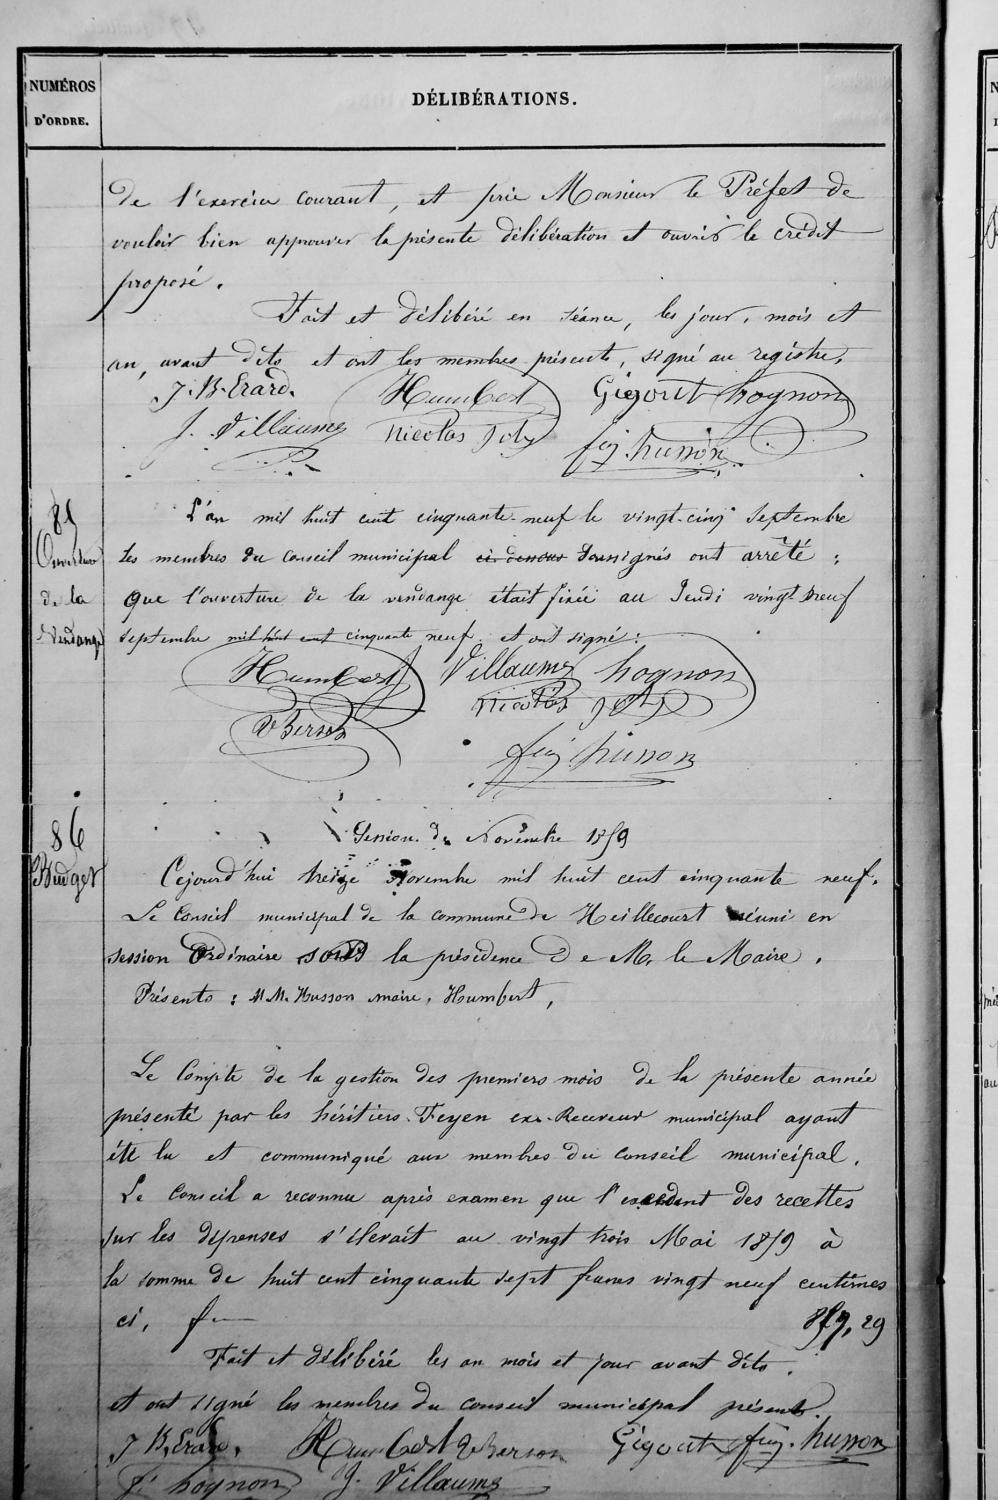 NUMÉROS
D'ORDRE.
DÉLIBÉRATIONS.
de l'exercice courant, et prie Monsieur le Préfet de
vouloir bien approuver la présente délibération et ouvrir le crédit
proposé.
Fait et délibéré en séance, les jour, mois et
an, avant dits et ont les membres présents, signé au registre.
J. B. Erard. Humbert Gigout hognon
J. Villaume Nicolas Joly husson
85
Ouverture
de la
Vendange
L'an mil huit cent cinquante-neuf le vingt-cinq Septembre
Les membres du Conseil municipal ci-dessus soussignés ont arrêté :
Que l'ouverture de la vendange était fixée au Jeudi vingt neuf
septembre mil huit cent cinquante neuf et ont signé :
Humbert Villaume hognon
Nicolas Joly
Berson
husson
86
Budget
Session de Novembre 1859
Cejourd'hui treize Novembre mil huit cent cinquante neuf.
Le Conseil municipal de la commune de Heillecourt réuni en
session Ordinaire sous la présidence de M. le Maire.
Présents : MM. Husson maire, Humbert,
Le Compte de la gestion des premiers mois de la présente année
présenté par les héritiers Feyen ex-Receveur municipal ayant
été lu et communiqué aux membres du Conseil municipal.
Le Conseil a reconnu après examen que l'excédent des recettes
sur les dépenses s'élevait au vingt trois Mai 1859 à
la somme de huit cent cinquante sept francs vingt neuf centimes
ci, f 857, 29
Fait et délibéré les an mois et jour avant dits.
et ont signé les membres du conseil municipal présents.
J B. Erard. Humbert Berson Gigout husson
hognon J. Villaume